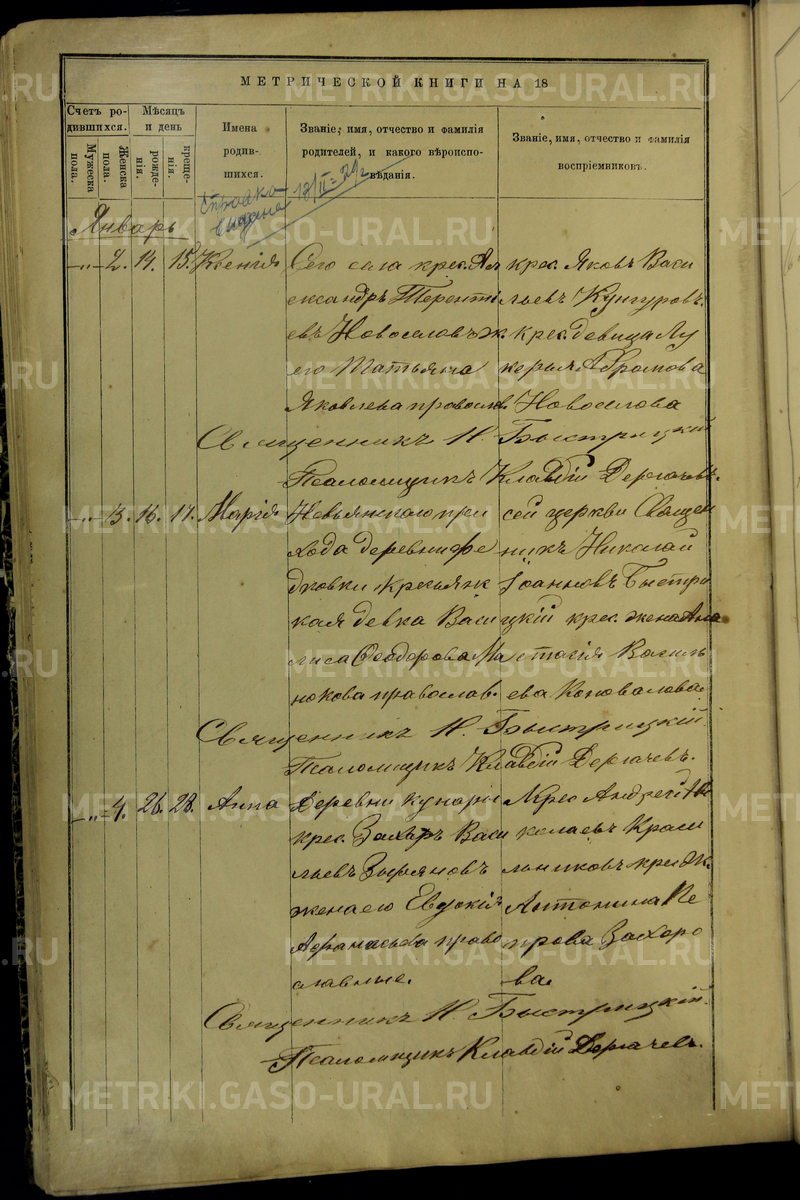 МЕТРИЧЕСКОЙ КНИГИ НА 18
Счетъ ро-
дившихся.
Мужеска
пола.
Женска
пола.
Мѣсяцъ
и день
рожде-
нія.
креще-
нія.
Имена
родив-
шихся.
Званіе, имя, отчество и фамилія
родителей, и какого вѣроиспо-
вѣданія.
Званіе, имя, отчество и фамилія
воспріемниковъ.
выдана
Январь
2. 14. 15. Ксенія
Сего села крес. Ал
ександръ Теренті
евъ Новоселовъ ж.
его Татьяна
Яковлева правосл.
крес. Яковъ Васи
льевъ Кунгуровъ.
крес. девица Лу
керья Абрамова
Новоселова
Священникъ Н. Быстрицкій
Псаломщикъ Клавдій Дергачевъ.
3. 16. 17. Марія
Невьянскаго при
хода деревни Фе
дковки крестьянс
кая девка Васи
лиса Феодорова
нокова православ.
сей церкви Священ
никъ Николай
Іоанновъ Быстри
цкій крес. жена Ана
стасія Василь
ева Коновалова.
Священникъ Н. Быстрицкій.
Псаломщикъ Клавдій Дергачевъ.
4. 26. 28. Анна
Деревни
крес. Захаръ Васи
льевъ Зыряновъ
жена его Евдокія
Афанасьева право
славные.
Крес. Андрей Ни
колаевъ Краси
льниковъ крес. ж.
Антонина Пе
трова Захаро
ва.
Священникъ Н. Быстрицкій.
Псаломщикъ Клавдій Дергачевъ.
METRIKI.GASO-URAL.RU